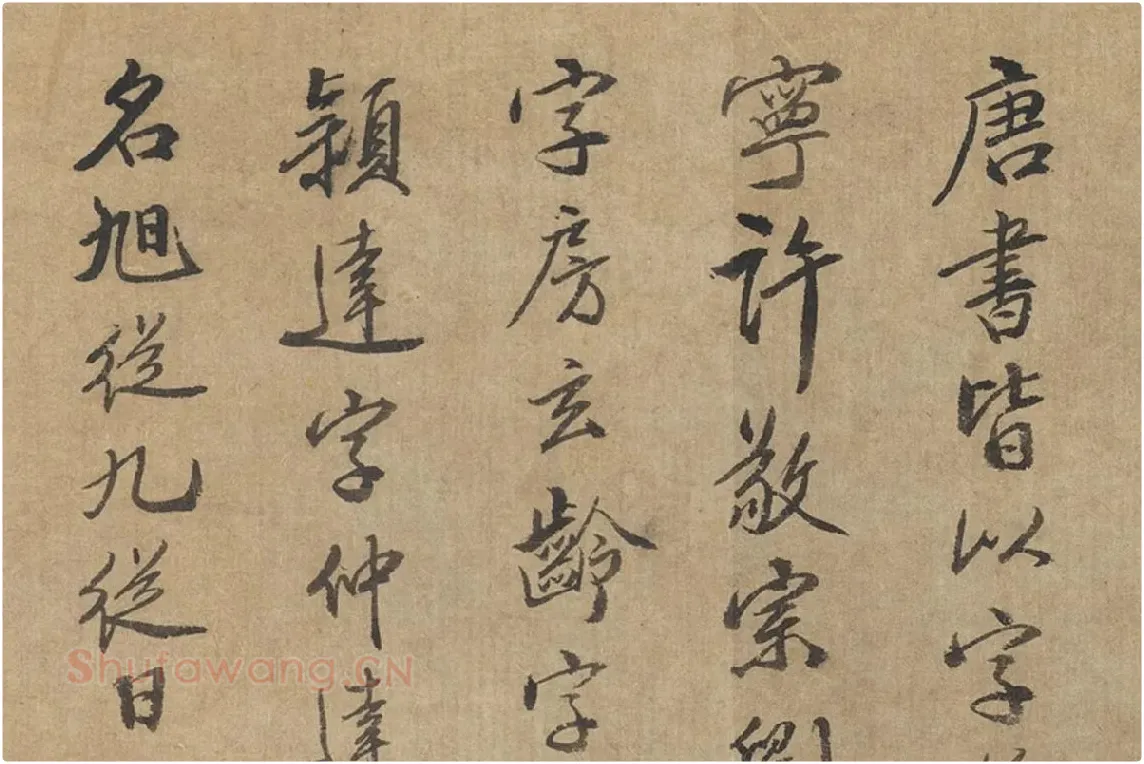 唐書皆以字
寧許敬宗劉
字房玄齡字
穎達字仲達
名旭從九從日
Shufawang.CN